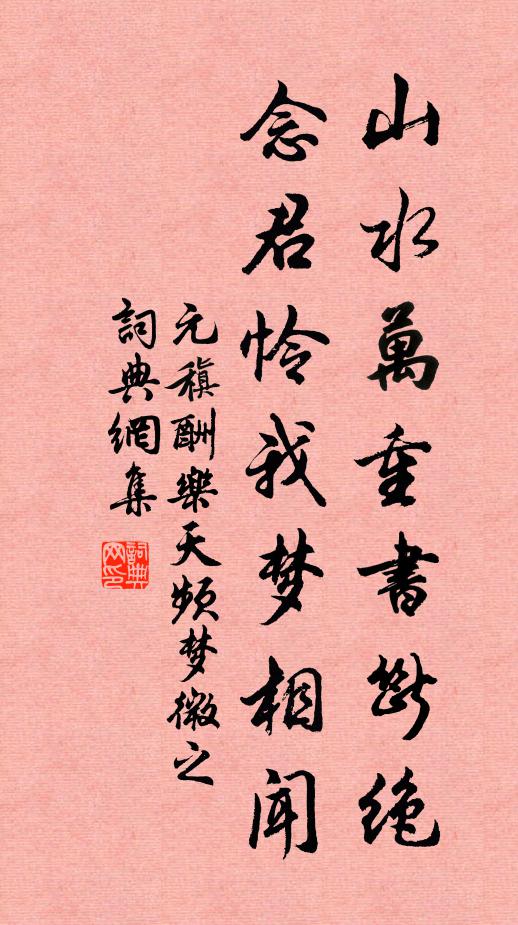 山水萬重書斷绝
念君怜我梦相闻
元稹酬樂天頻梦微之
詞典網集
詞典网印